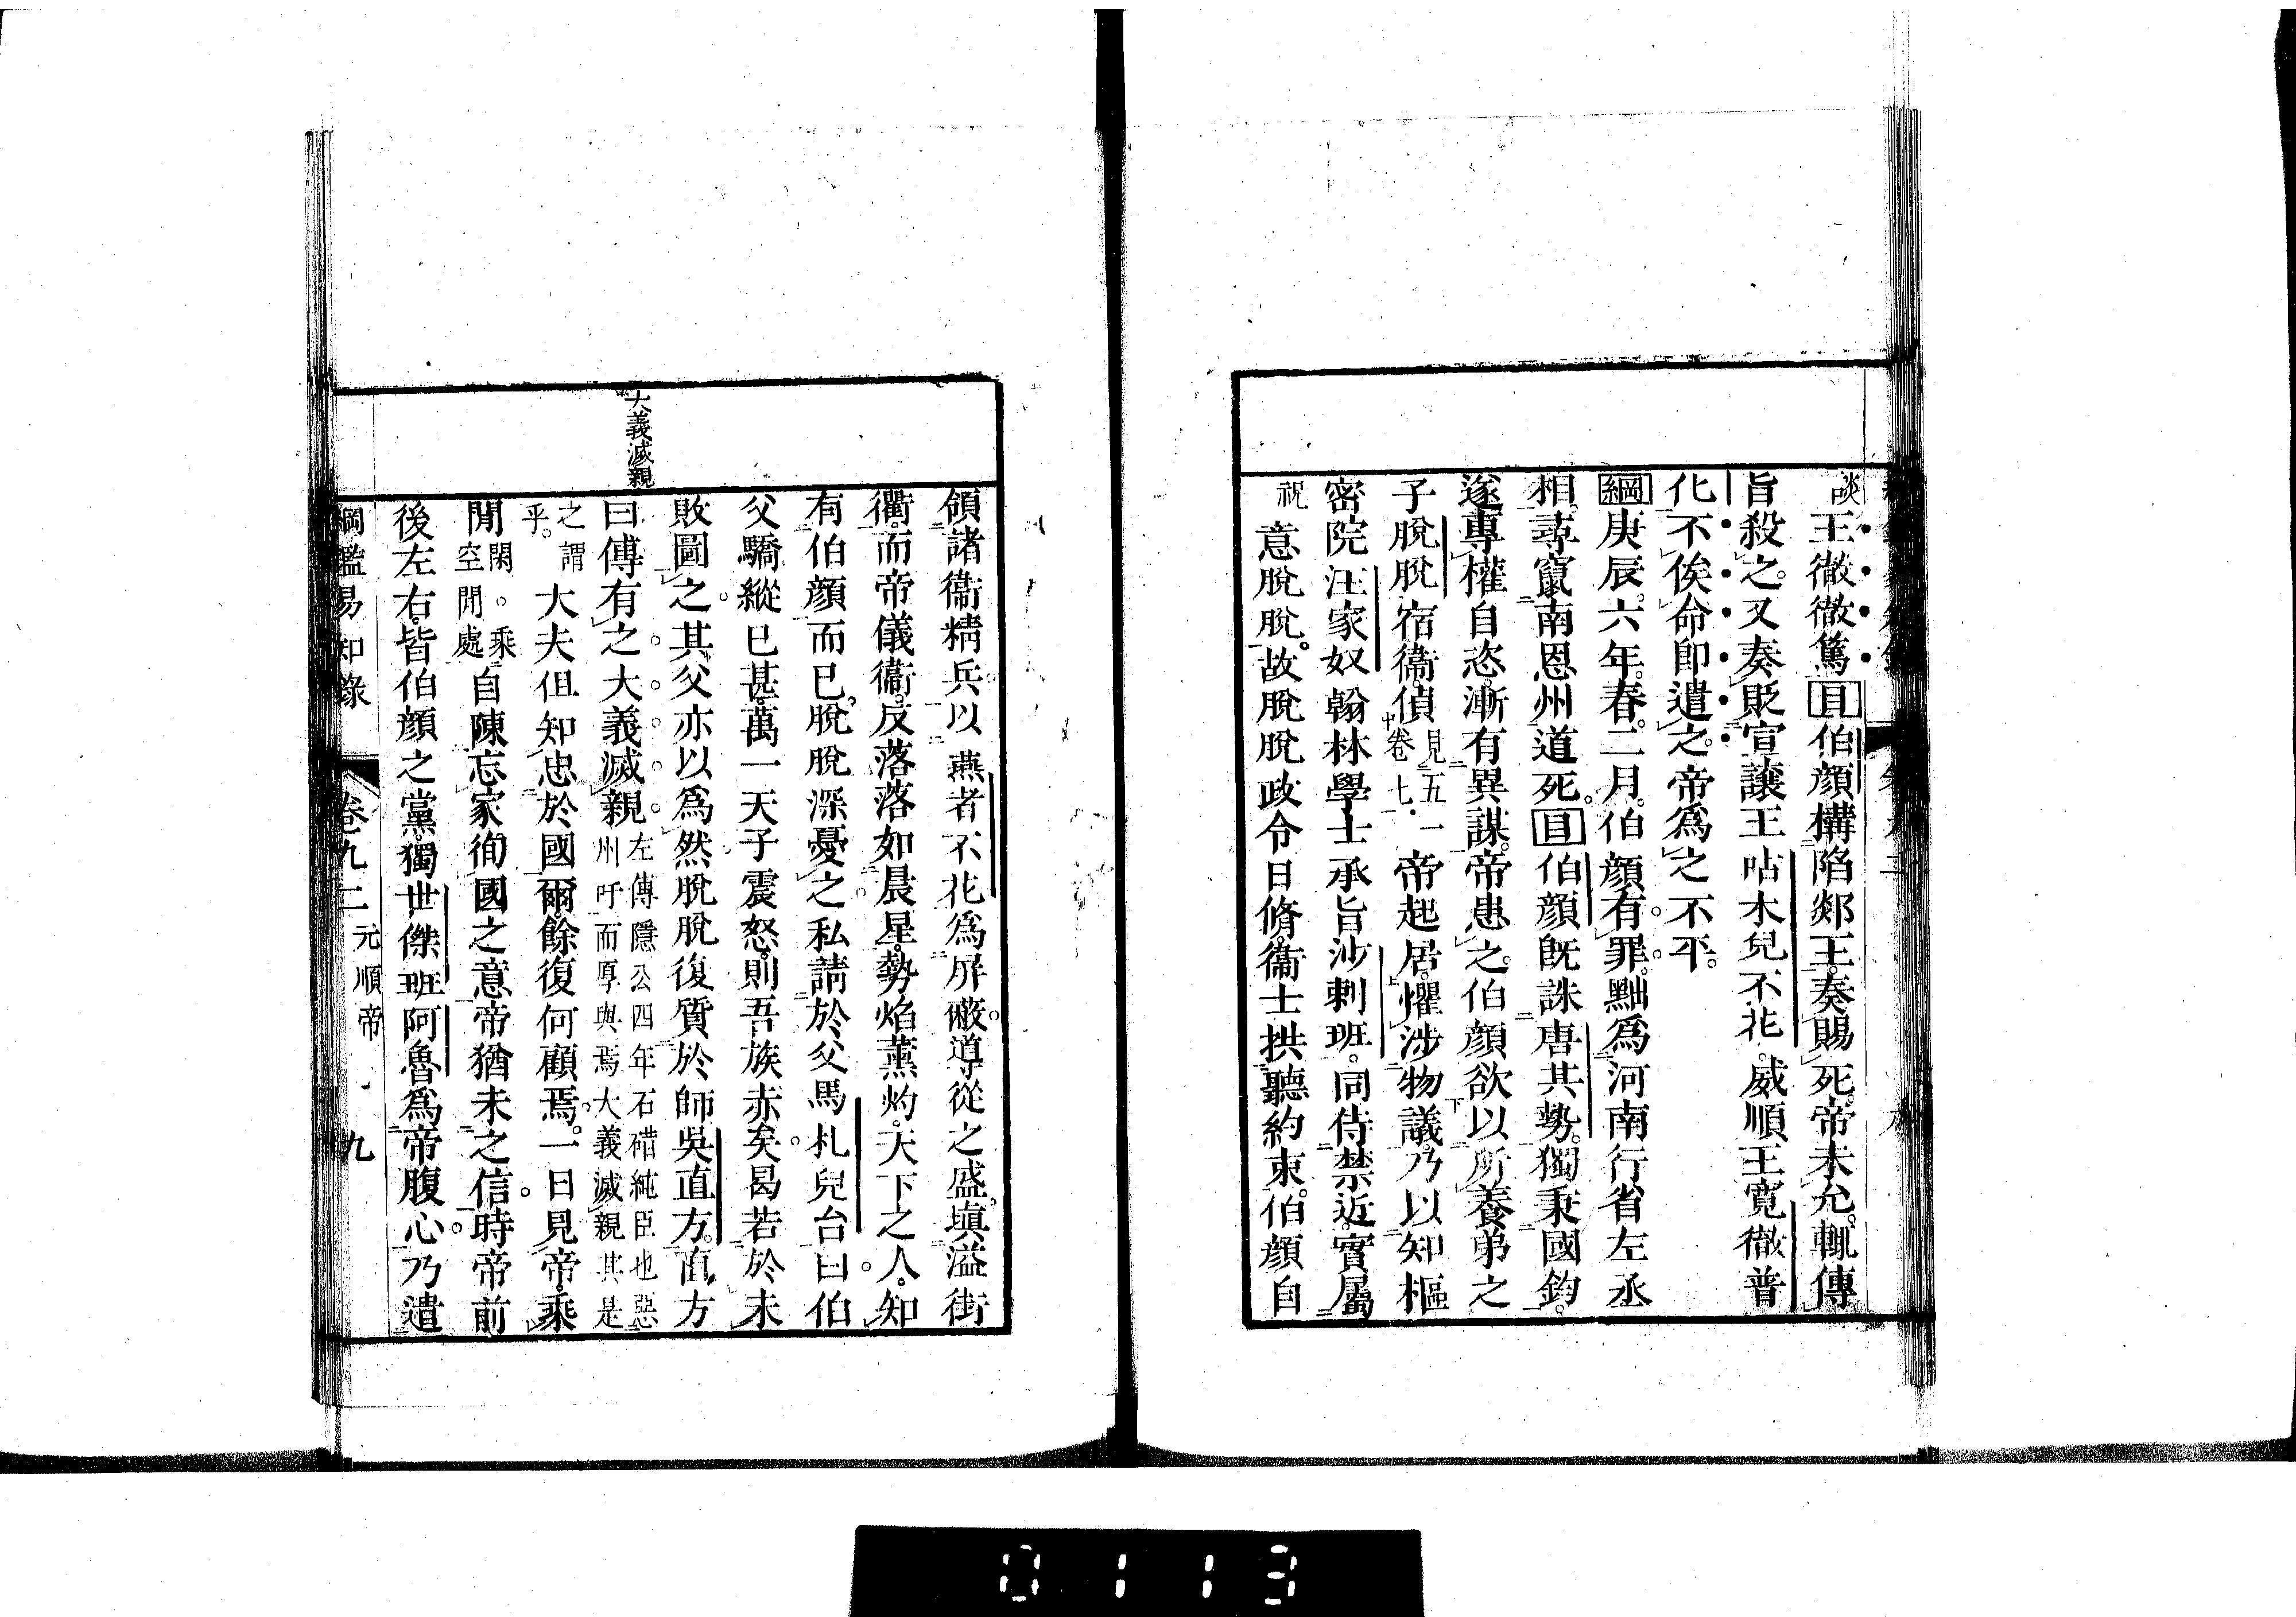 談王徹徹篤目伯顏構陷郯王奏賜死。帝未允。輒傳
旨殺之。又奏貶宣讓王帖木兒不花。威順王寬徹普
化。不俟命即遣之。帝爲之不平。
綱庚辰。六年。春。二月。伯顏有罪。黜爲河南行省左丞
相。尋竄南恩州道死。目伯顏既誅唐其勢。獨秉國鈞。
遂專權自恣。漸有異謀。帝患之。伯顏欲以所養弟之
子脫脫宿衞。偵見五十卷七一帝起居。懼涉物議。乃以知樞
密院汪家奴翰林學士承旨沙剌班。同侍禁近。實屬
祝意脫脫。故脫脫政令日脩。衞士拱聽約束。伯顏自
領諸衞精兵。以燕者不花爲屏蔽。導從之盛。塡溢街
衢。而帝儀衞。反落落如晨星。勢焰薰灼。天下之人。知
有伯顏而已。脫脫深憂之。私請於父馬札兒台曰。伯
父驕縱已甚。萬一天子震怒。則吾族赤矣。曷若於未
敗圖之。其父亦以爲然。脫脫復質於師吳直方。直方
曰傳有之。大義滅親。左傳隱公四年石碏純臣也惡州吁而厚與焉大義滅親其是
之謂乎。大夫但知忠於國爾。餘復何顧焉。一日見帝。乘
閒閑。乘空閒處自陳忘家徇國之意。帝猶未之信。時帝前
後左右。皆伯顏之黨。獨世傑班阿魯爲帝腹心。乃遣
大義滅親
綱鑑易知錄 卷九二 元順帝 九
0113